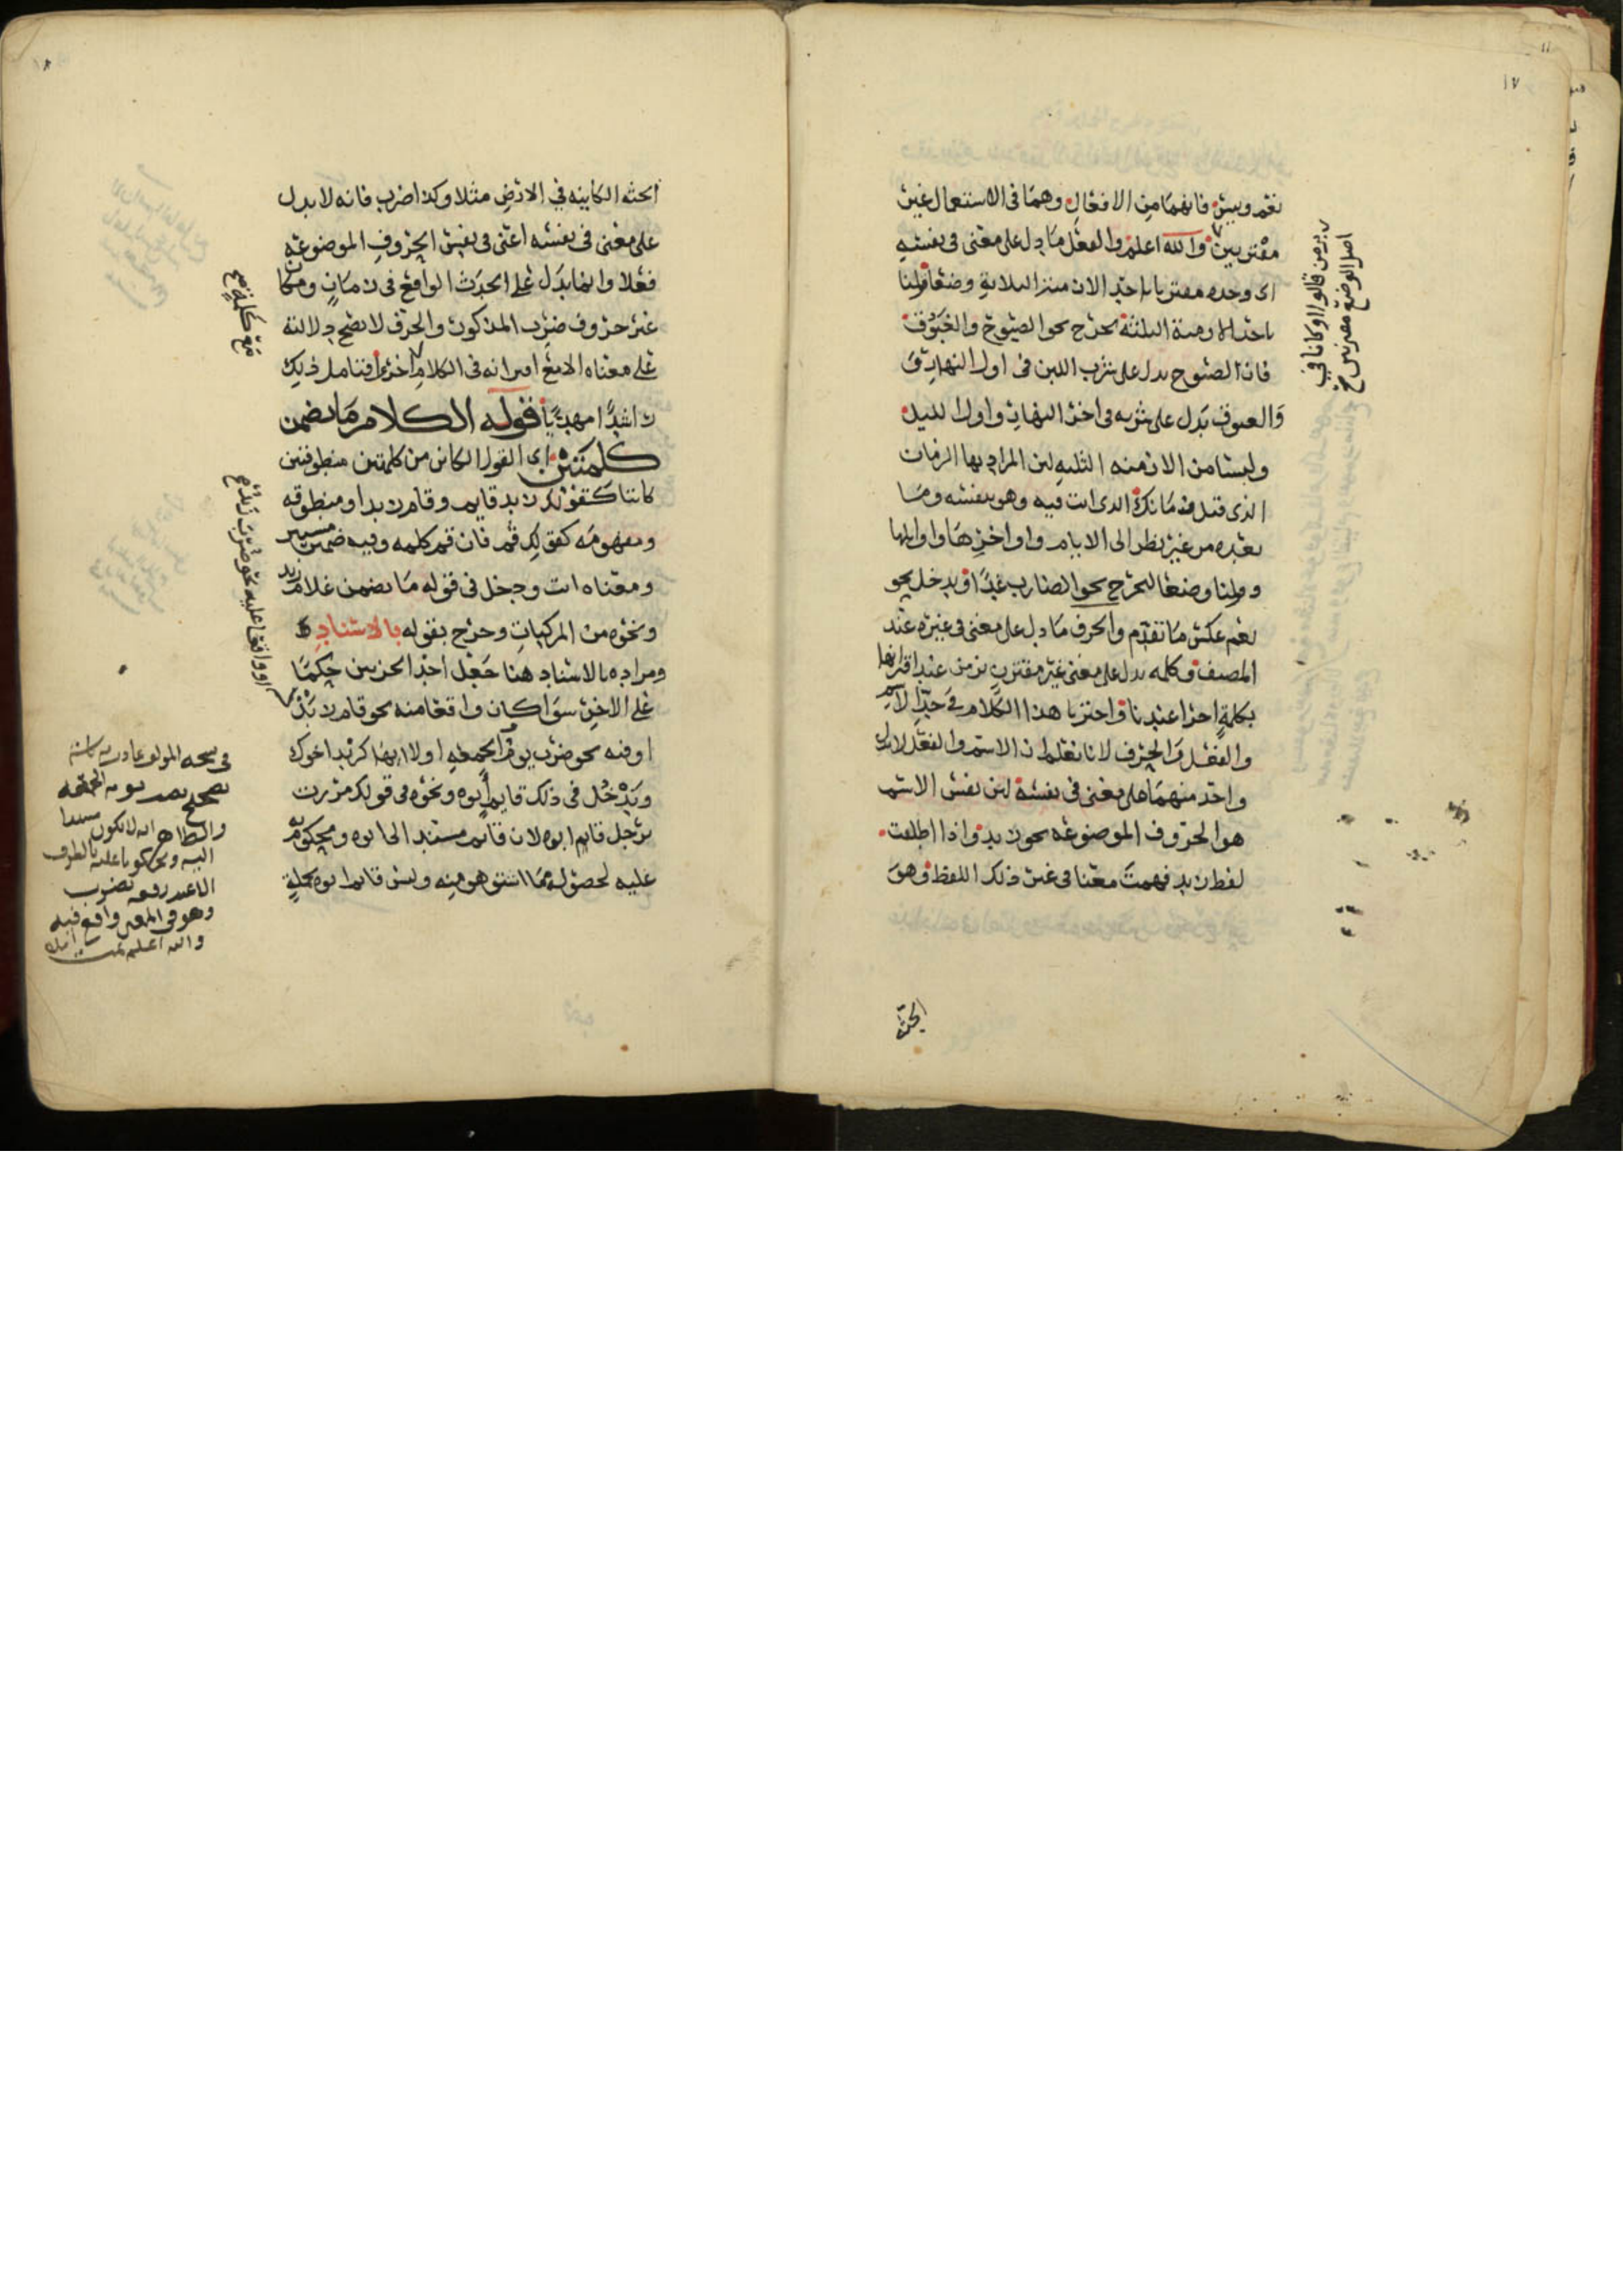 ١٧
نعم وبيس فانهما من الافعال وهما فى الاستعمال غير
مقترنين والله اعلم والفعل ما دل على معنى فى نفسه
اى وحده مقترنا باحد الازمنة الثلاثة وضعا قولنا
باحد الازمنة الثلثة تخرج نحو الصبوح والغبوق
فان الصبوح يدل على شرب اللبن فى اول النهار
والغبوق يدل على شربه فى اخر النهار واول الليل
وليستا من الازمنه الثلثه لان المراد بها الزمان
الذى قبل زمانك الذى انت فيه وهو بنفسه وما
بعده من غير نظر الى الايام واواخرها واوايلها
وقولنا وضعا ليخرج نحو الضارب غدا ويدخل نحو
نعم عكس ما تقدم والحرف ما دل على معنى فى غيره عند
المصنف وكلمه تدل على معنى غير مقترن بزمن عند اقترانها
بكلمة اخرا عندنا واحترنا هذا الكلام فى حد الاسم
والفعل والحرف لانا نعلم ان الاسم والفعل لا يدل
واحد منهما على معنى فى نفسه لان نفس الاسم
هو الحروف الموضوعه نحو زيد واذا اطلقت
لفظ زيد فهمت معنا فى غير ذلك اللفظ وهو
الجثه
اصل الوضع مقترنين
الجثه الكاينه في الارض مثلا وكذا ضرب فانه لا يدل
على معنى فى نفسه اعنى فى نفس الحروف الموضوعه
فعلا وانما يدل على الحدث الواقع فى زمان ومكان
غير حروف ضرب المذكور والحرف لا تصح دلالته
على معناه الا مع اقترانه فى الكلام اخرى فتامل ذلك
راشدا مهديا قوله الكلام ما تضمن
كلمتين اى القول الكاين من كلمتين منطوقتين
كانتا كقولك زيد قايم وقام زيد او منطوقه
ومفهومه كقولك قم فان قم كلمه وفيه ضمير مستتر
ومعناه انت ودخل فى قوله ما تضمن غلام زيد
ونحوه من المركبات وخرج بقوله بالاسناد
ومراده بالاسناد هنا جعل احد الجزئين حكما
على الاخر سوا كان واقعا منه نحو قام زيد
او فيه نحو ضرب يوم الجمعه او لا ايهما كزيد اخوك
ويدخل فى ذلك قايم ابوه ونحوه فى قولك مررت
برجل قايم ابوه لان قايم مسند الى ابوه ومحكوم به
عليه لحصوله مما اشتق هو منه وليس قايم ابوه بجملة
مع كلمة صح
او واقعا عليه نحو ضرب زيد صح
والله اعلم